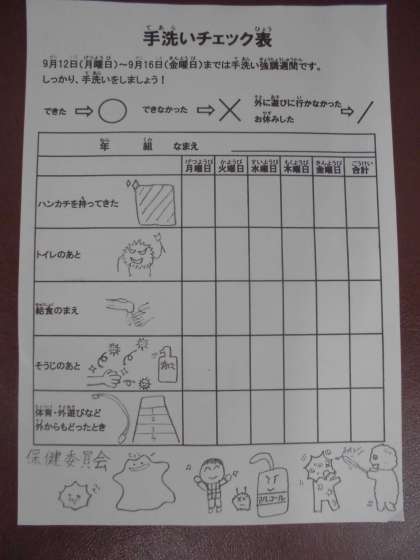 手洗いチェック表
9月12日(月曜日)～9月16日(金曜日)までは手洗い強調週間です。
しっかり、手洗いをしましょう!
できた ⇨ ○ できなかった ⇨ ✕ 外に遊びに行かなかった
お休みした ⇨ /
年 組 なまえ
月曜日 火曜日 水曜日 木曜日 金曜日 合計
ハンカチを持ってきた
トイレのあと
給食のまえ
そうじのあと
体育・外遊びなど
外からもどったとき
保健委員会
アルコール